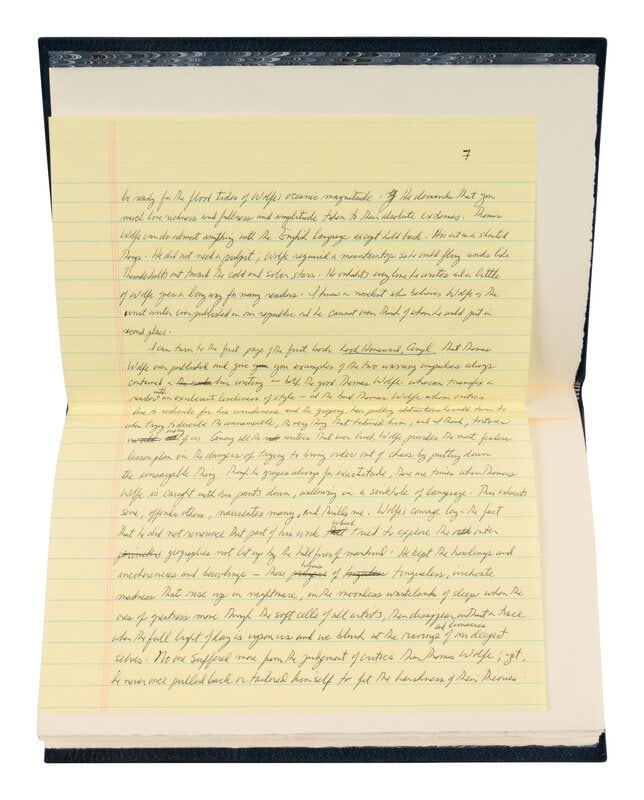 7
be ready for the flood tides of Wolfe's oceanic magnitude. He demands that you
much love richness and fullness and amplitude taken to their absolute extremes. Thomas
Wolfe can do almost anything with the English language except hold back. His art is a shouted
thing. He did not need a pulpit; Wolfe required a mountaintop so he could fling words like
thunderbolts out toward the cold and sober stars. He inhabits every line he writes and a little
of Wolfe goes a long way for many readers. I know a novelist who believes Wolfe is the
worst writer ever published in our republic and he cannot even think of whom he would put in
second place.
I can turn to the first page of the first book Look Homeward, Angel that Thomas
Wolfe ever published and give you examples of the two warring impulses always
contained his writing - both the good Thomas Wolfe who can transfix a
reader with an exuberant loveliness of style - and the bad Thomas Wolfe whom critics
line to ridicule for his windiness and the groping, hair pulling abstractions he would turn to
when trying to describe the unnameable, the very thing that tortured him, and, I think, tortures
many of us. Among all the writers that ever lived, Wolfe provides the most fearless
lesson plan on the dangers of trying to bring order out of chaos by putting down
the unsayable thing. Though he gropes always for exactitude, there are times when Thomas
Wolfe is caught with his pants down, wallowing in a sinkhole of language. This exhausts
some, offends others, nauseates many, and thrills me. Wolfe's courage lay in the fact
that he did not renounce that part of his work which tried to explore the outer
geographies not lit up by the hill fires of mankind. He kept the howlings and
incoherences and bawlings - those hymns of tongueless, inchoate
madness that rise up in nightmare, in the moonless wastelands of sleep when the
ores of greatness move through the soft cells of all artists, then disappear without a trace
when the full light of day is upon us and we blush at the ravings and lunacies of our deepest
selves. No one suffered more from the judgement of critics than Thomas Wolfe; yet,
he never once pulled back or tailored himself to fit the harshness of their theories.